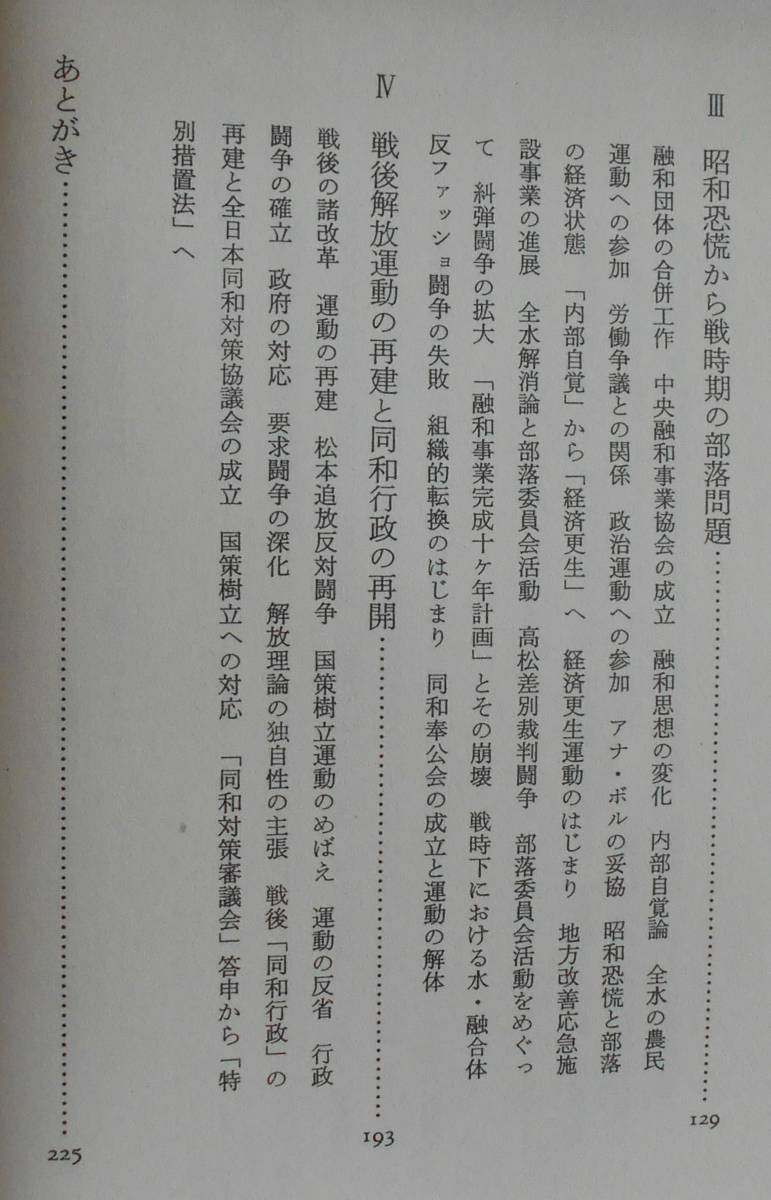 Ⅲ 昭和恐慌から戦時期の部落問題……………129
融和団体の合併工作 中央融和事業協会の成立 融和思想の変化 内部自覚論 全水の農民
運動への参加 労働争議との関係 政治運動への参加 アナ・ボルの妥協 昭和恐慌と部落
の経済状態 「内部自覚」から「経済更生」へ 経済更生運動のはじまり 地方改善応急施
設事業の進展 全水解消論と部落委員会活動 高松差別裁判闘争 部落委員会活動をめぐっ
て 糾弾闘争の拡大 「融和事業完成十ケ年計画」とその崩壊 戦時下における水・融合体
反ファッショ闘争の失敗 組織的転換のはじまり 同和奉公会の成立と運動の解体
Ⅳ 戦後解放運動の再建と同和行政の再開……………193
戦後の諸改革 運動の再建 松本追放反対闘争 国策樹立運動のめばえ 運動の反省 行政
闘争の確立 政府の対応 要求闘争の深化 解放理論の独自性の主張 戦後「同和行政」の
再建と全日本同和対策協議会の成立 国策樹立への対応 「同和対策審議会」答申から「特
別措置法」へ
あとがき……………225